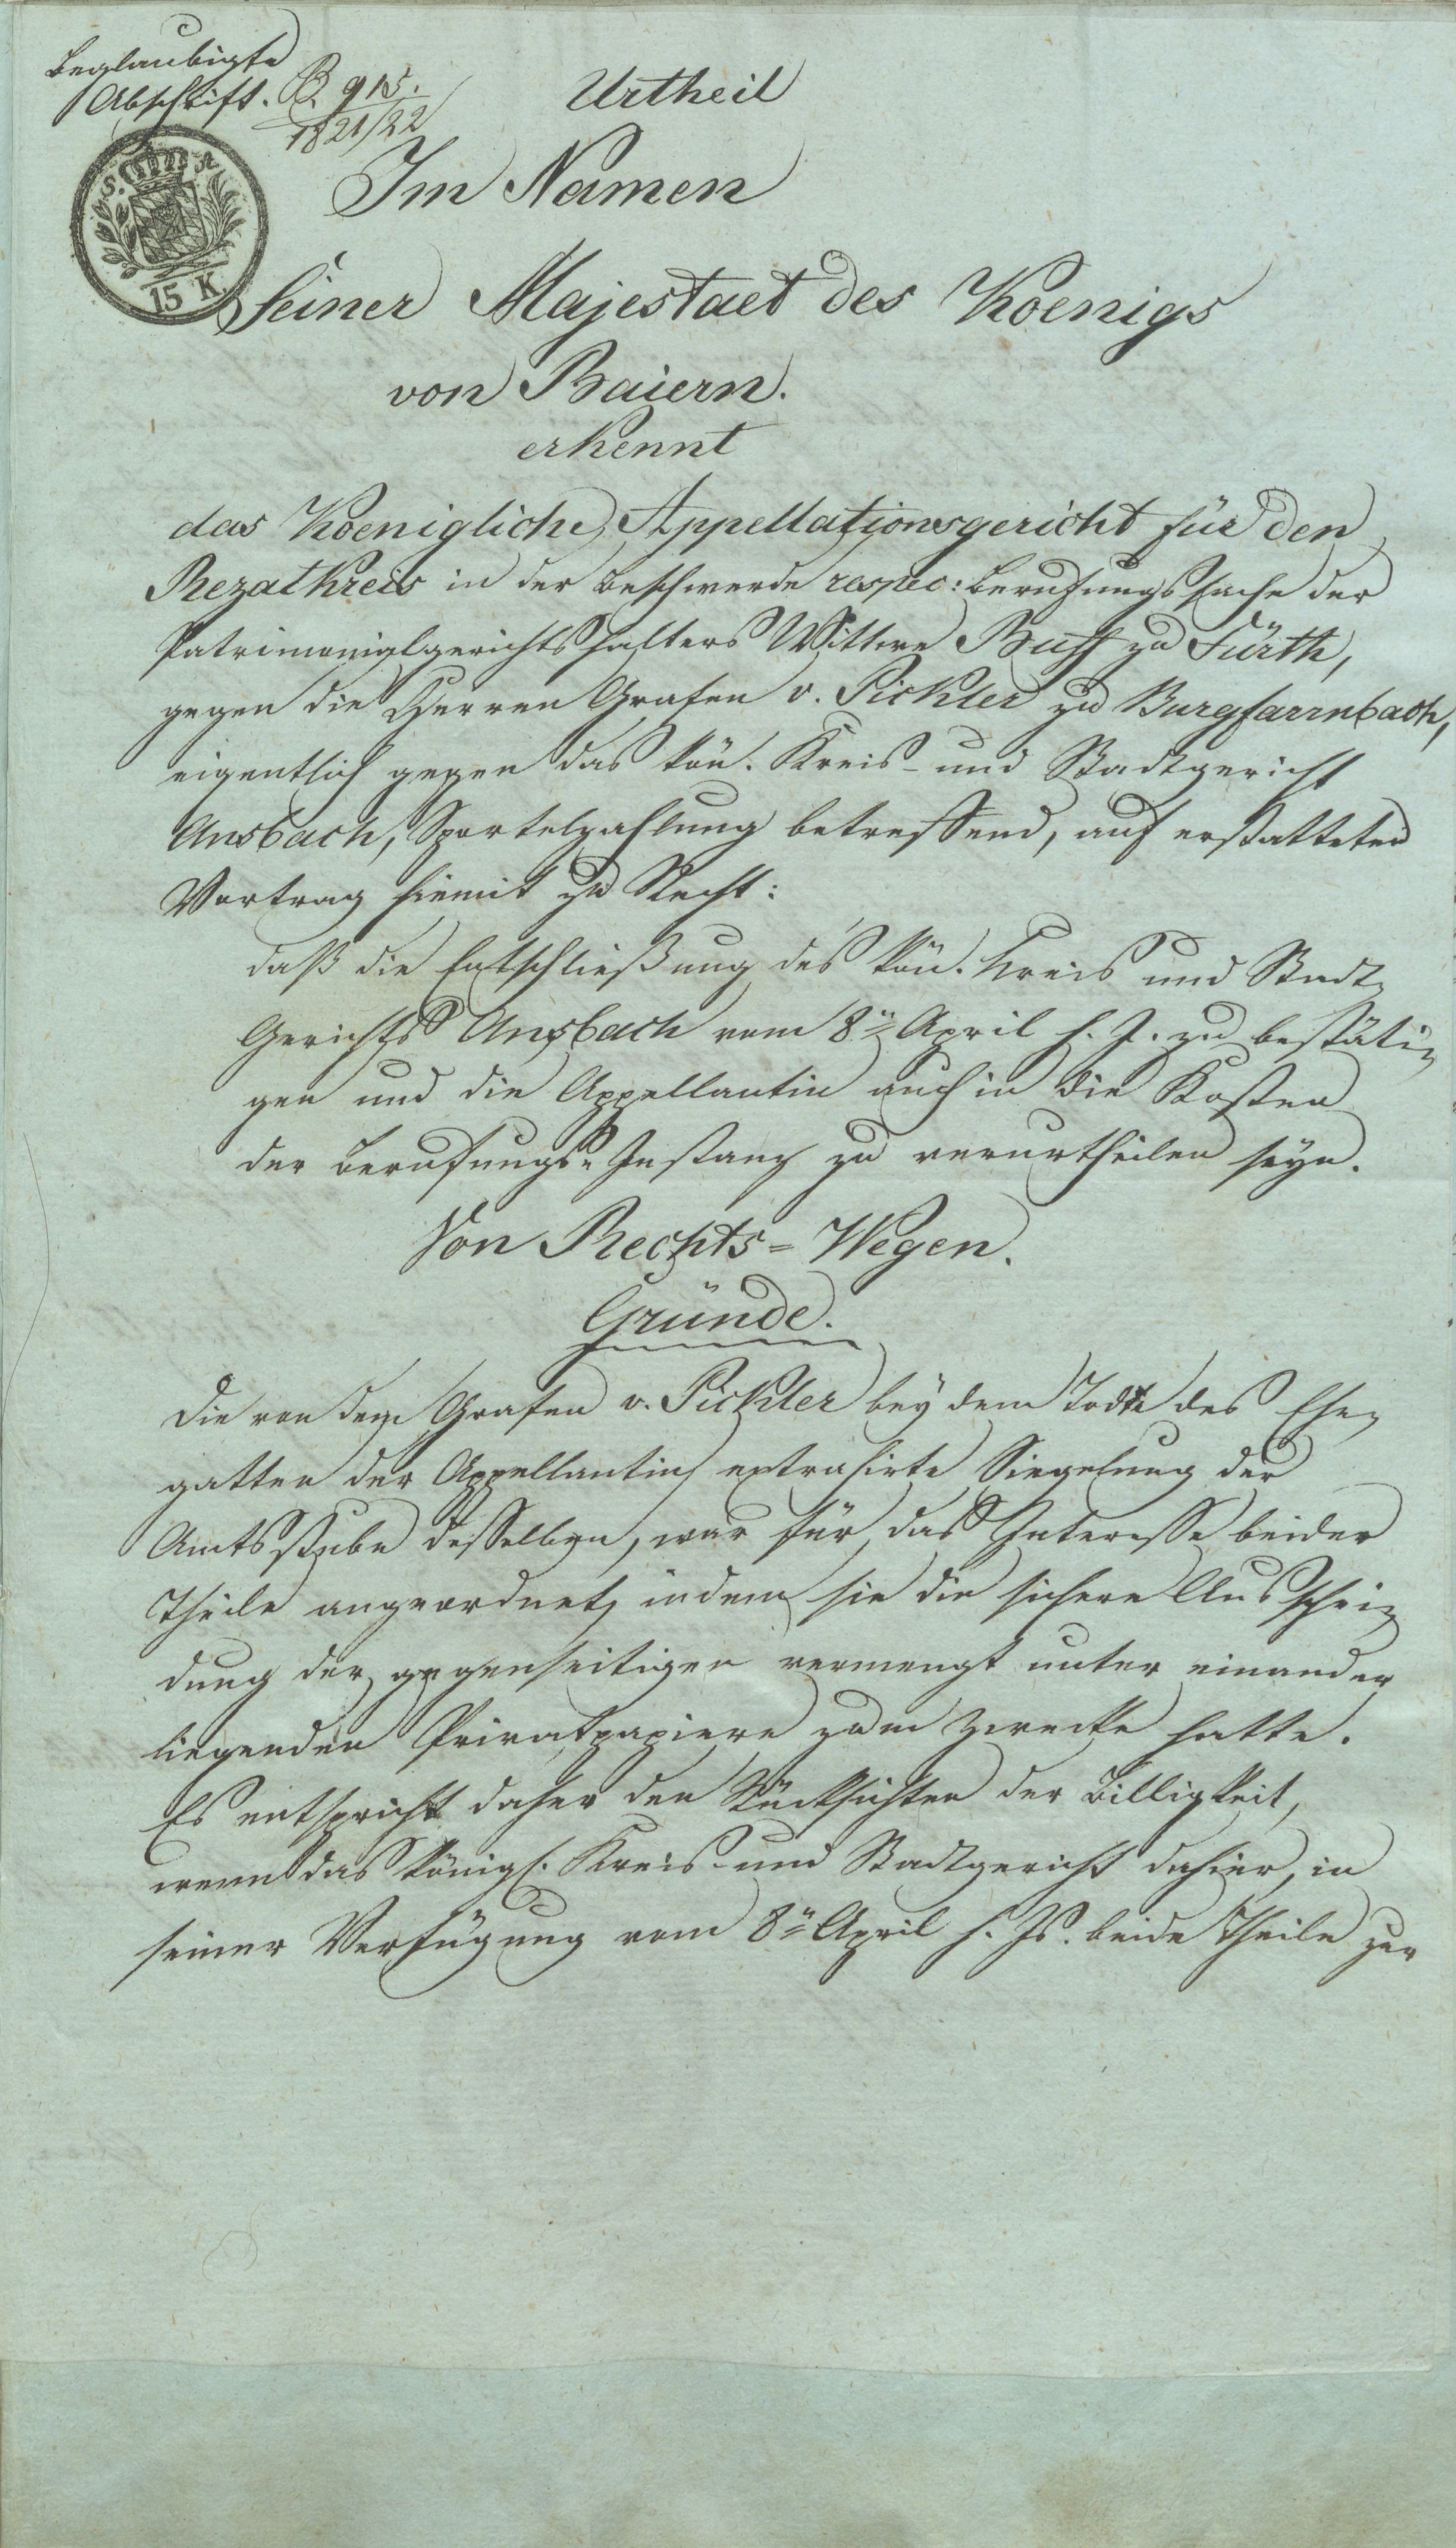 Beglaubigte
Abschrift.
B. 915.
1821/22
Urtheil
Im Namen
15 K.
Seiner Majestaet des Koenigs
von Baiern.
erkennt
das Koenigliche Appellationsgericht für den
Rezatkreis in der Beschwerde respec: Berufungssache der
Patrimonialgerichtshalters Wittwe Buff zu Fürth,
gegen die Herren Grafen v. Pickler zu Burgfarrnbach,
eigentlich gegen das kön. Kreis- und Stadtgericht
Ansbach, Sportelzahlung betreffend, auf erstatteten
Vortrag hiemit zu Recht:
daß die Entschließung des kön. Kreis und Stadt-
Gerichts Ansbach vom 8n April h. J. zu bestäti-
gen und die Appellantin auch in die Kosten
der Berufungs-Instanz zu verurtheilen seyn.
Von Rechts-Wegen.
Gründe.
Die von dem Grafen v. Pickler bey dem Todte des Ehe-
gatten der Appellantin extrahirte Siegelung der
Amtsstube desselben, war für das Interesse beider
Theile angeordnet, indem sie die sichere Ausschei-
dung der gegenseitigen vermengt unter einander
liegenden Privatpapiere zum Zwecke hatte.
Es entspricht daher den Rücksichten der Billigkeit,
wenn das königl. Kreis- und Stadtgericht dahier, in
seiner Verfügung vom 8n April h. Js. beide Theile zur